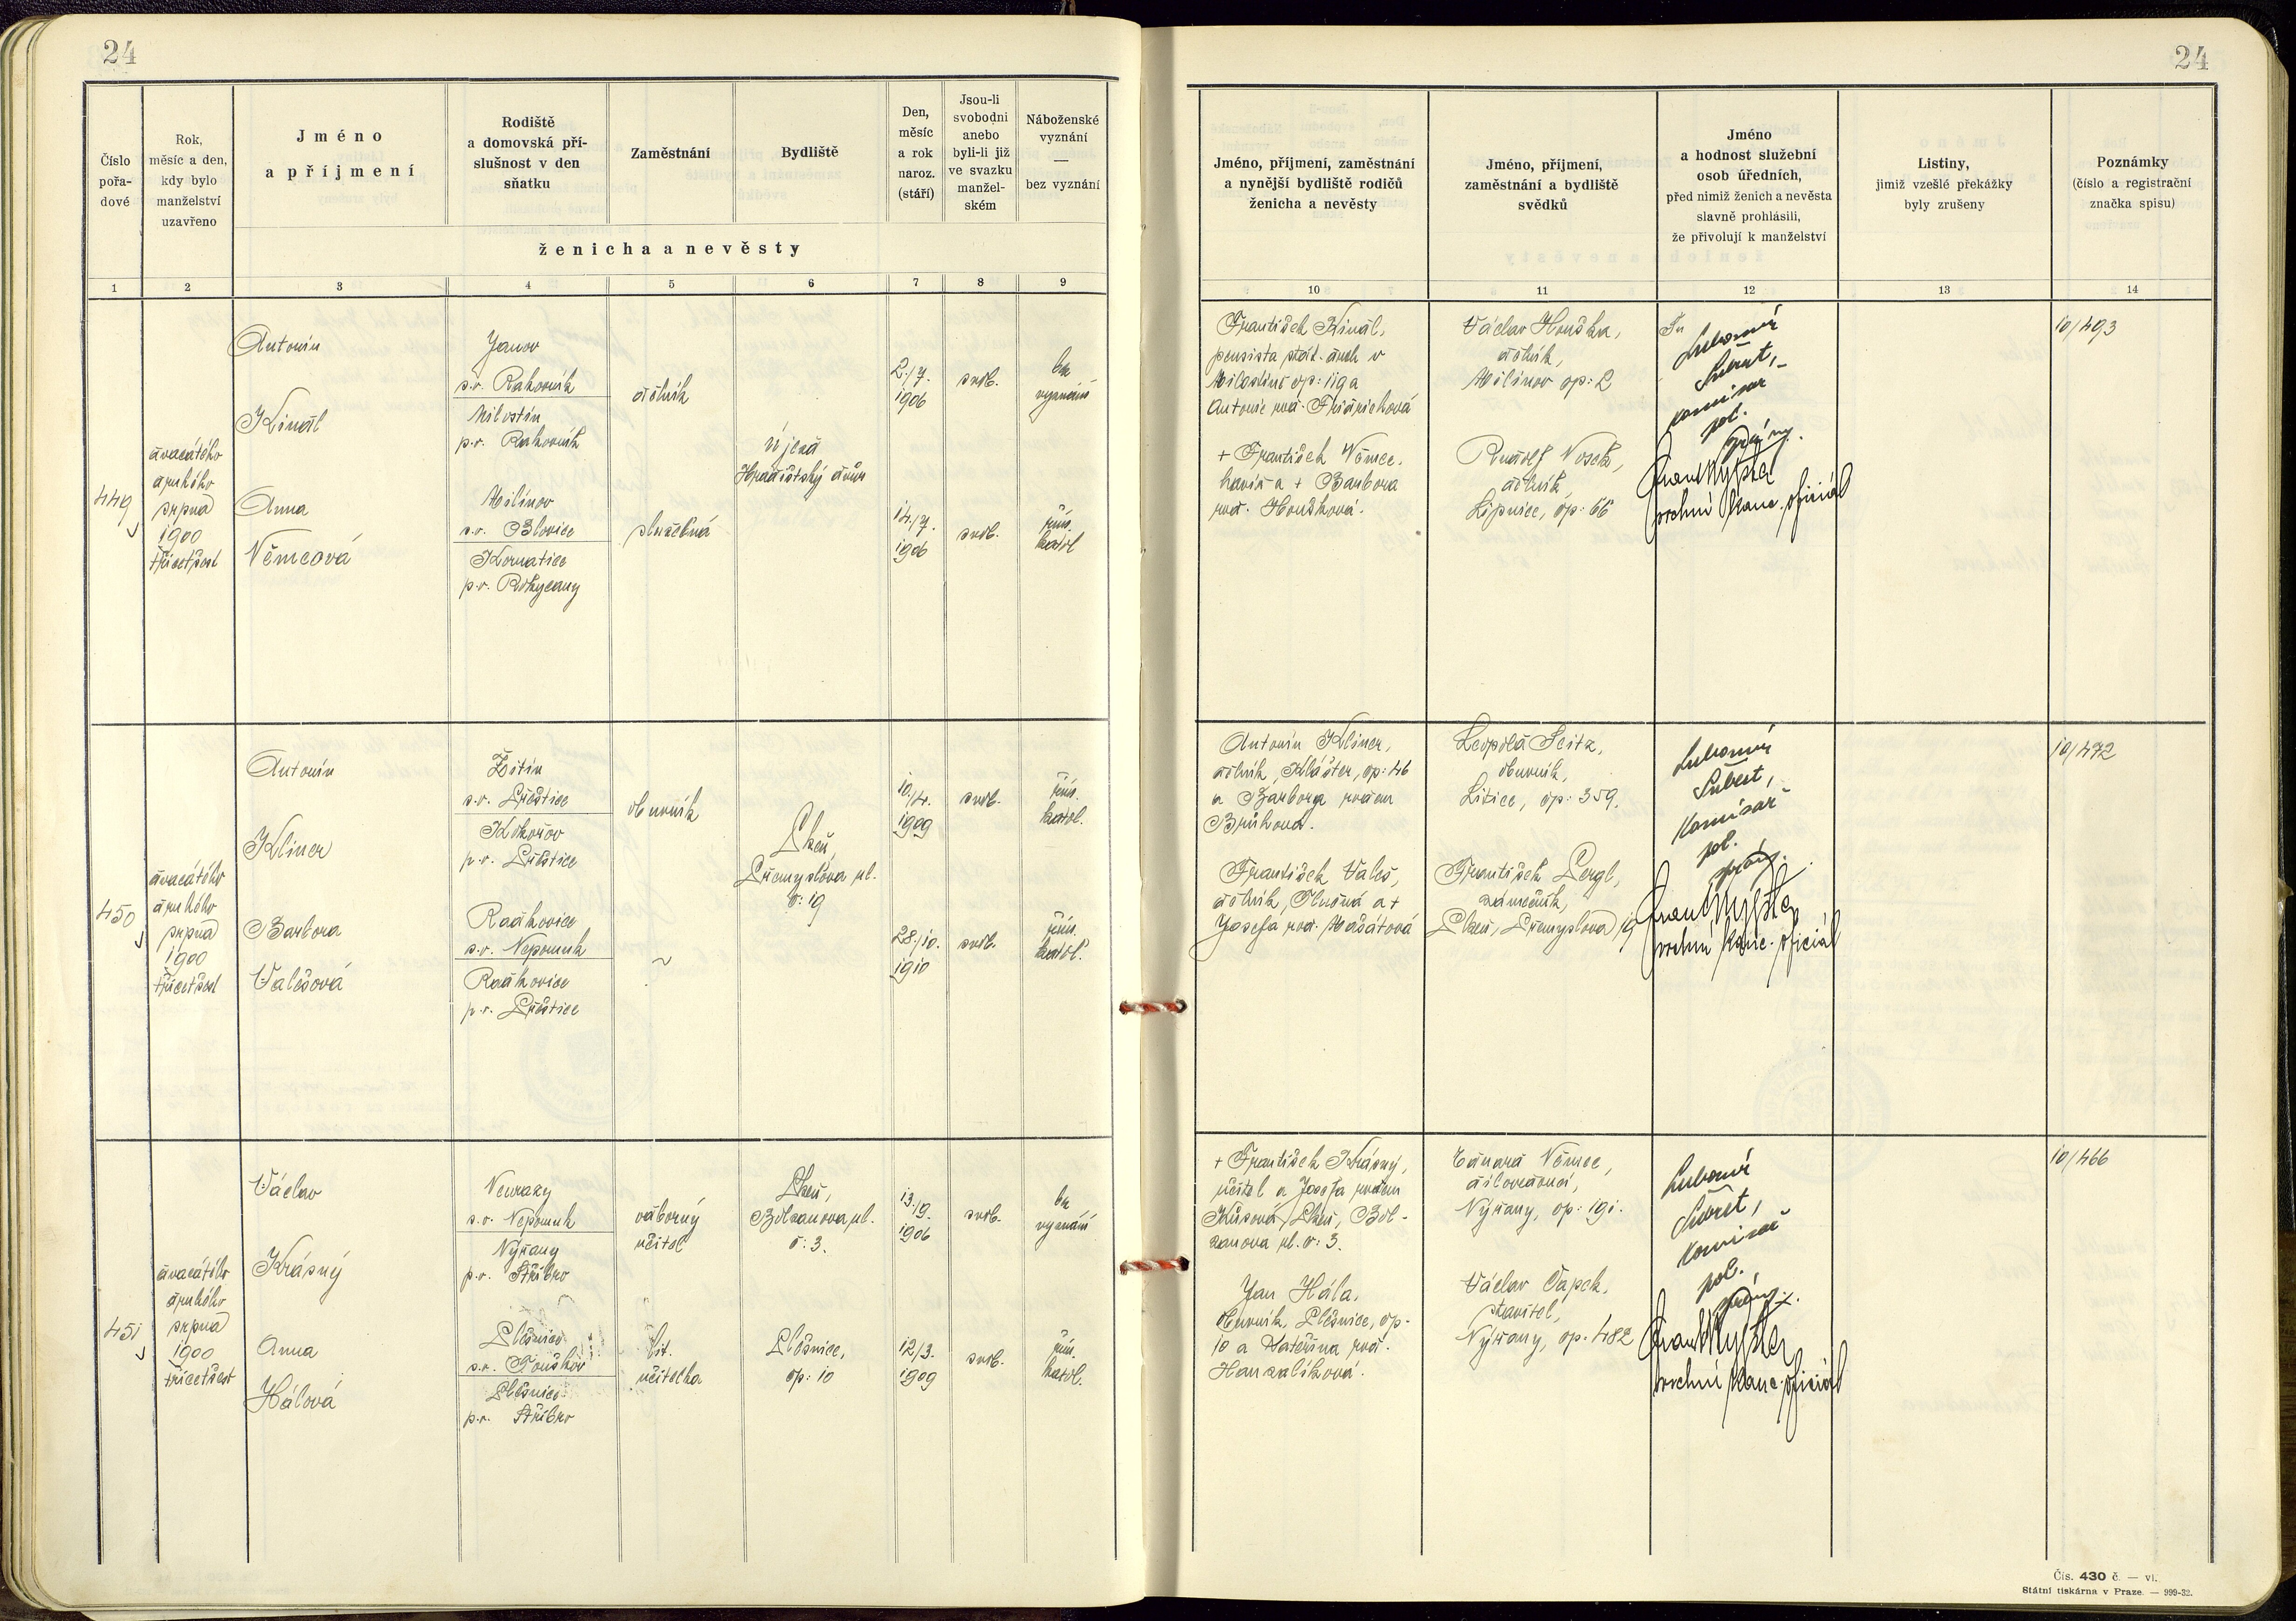 24
24
Číslo
pořa-
dové
Rok,
měsíc a den,
kdy bylo
manželství
uzavřeno
Jméno
a příjmení
Rodiště
a domovská pří-
slušnost v den
sňatku
Zaměstnání
Bydliště
Den,
měsíc
a rok
naroz.
(stáří)
Jsou-li
svobodni
anebo
byli-li již
ve svazku
manžel-
ském
Náboženské
vyznání
—
bez vyznání
ženicha a nevěsty
Jméno, příjmení, zaměstnání
a nynější bydliště rodičů
ženicha a nevěsty
Jméno, příjmení,
zaměstnání a bydliště
svědků
Jméno
a hodnost služební
osob úředních,
před nimiž ženich a nevěsta
slavně prohlásili,
že přivolují k manželství
Listiny,
jimiž vzešlé překážky
byly zrušeny
Poznámky
(číslo a registrační
značka spisu)
1 2 3 4 5 6 7 8 9
10 11 12 13 14
449
dvacátého
druhého
srpna
1900
třicetšest
Antonín
Kinál
Anna
Němcová
Janov
s.o. Rakovník
Milostín
p.o. Rakovník
Milínov
s.o. Blovice
Kornatice
p.o. Rokycany
dělník
služebná
Újezd
Hradišťský dvůr
2./7.
1906
14./7.
1906
svob.
svob.
bez
vyznání
řím.
katol
František Kinál,
pensista stát. drah v
Milostíně čp: 119 a
Antonie roz.
+ František Němec,
havíř a + Barbora
roz. Houšková.
Václav Houška,
dělník,
Milínov čp: 2
Rudolf Nosek,
dělník,
Lipnice, čp: 66
Lubomír
komisar
pol.
správy.
vrchní kanc. oficiál
10/493
450
dvacátého
druhého
srpna
1900
třicetšest
Antonín
Kliner
Barbora
Valešová
Žitín
s.o. Přeštice
Kokořov
p.o. Přeštice
Radkovice
s.o. Nepomuk
Radkovice
p.o. Přeštice
obuvník
Plzeň,
Přemyslova ul.
č: 19
10./4.
1909
28./10.
1910
svob.
svob.
řím.
katol.
řím.
katol.
Antonín Kliner,
dělník, Klášter, čp: 46
a Barbora rozen
Brůhova.
František Valeš,
dělník, a +
Josefa roz. Mašátová
Leopold Seitz,
obuvník,
Litice, čp: 359.
František Pergl,
zámečník,
Plzeň, Přemyslova 19
Lubomír
Komisař
pol.
správy.
vrchní kanc. oficiál
10/472
451
dvacátého
druhého
srpna
1900
třicetšest
Václav
Krásný
Anna
Hálová
Neurazy
s.o. Nepomuk
Nýřany
p.o. Stříbro
Plešnice
s.o. Touškov
Plešnice
p.o. Stříbro
odborný
učitel
lit.
učitelka
Plzeň,
Bolzanova ul.
č: 3.
Plešnice,
čp: 10
13./9.
1906
12/3.
1909
svob.
svob.
bez
vyznání
řím.
katol.
+ František Krásný,
učitel a Josefa rozen
Kůsová, Plzeň, Bol-
zanova ul. č: 3.
Jan Hála,
obuvník, Plešnice, čp-
10 a Kateřina roz.
Hanzalíková.
Eduard Němec,
dílovedoucí,
Nýřany, čp: 191.
Václav Čapek,
stavitel,
Nýřany, čp: 482
Lubomír
Komisař
pol.
správy.
vrchní kanc. oficiál
10/466
Čís. 430 č. — vl.
Státní tiskárna v Praze. — 999-32.